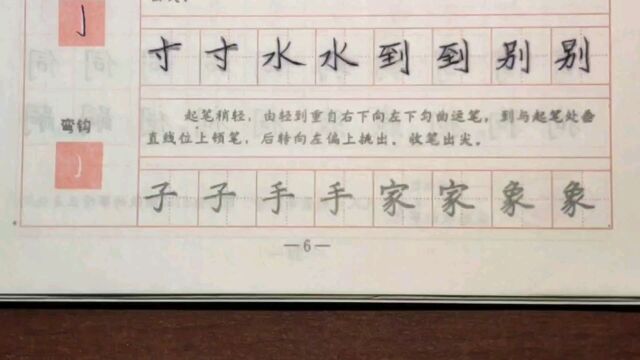 寸寸水水到到别别
弯钩
起笔稍轻，由轻到重自右下向左下匀曲运笔，到与起笔处垂
直线位上顿笔，后转向左偏上挑出。收笔出尖。
子子手手家家象象
—6—